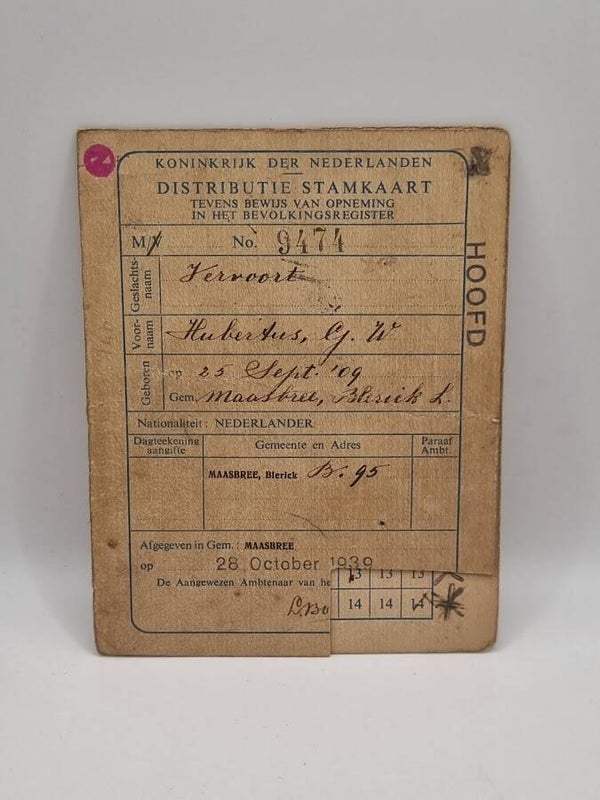 KONINKRIJK DER NEDERLANDEN
DISTRIBUTIE STAMKAART
TEVENS BEWIJS VAN OPNEMING
IN HET BEVOLKINGSREGISTER
M/V No. 9474
HOOFD
Geslachts-
naam
Vervoort
Voor-
naam
Hubertus, G. W
Geboren
op 25 Sept. '09
Gem. Maasbree, Blerick L.
Nationaliteit: NEDERLANDER
Dagteekening
aangifte
Gemeente en Adres
Paraaf
Ambt.
MAASBREE, Blerick B. 95
Afgegeven in Gem.: MAASBREE
op 28 October 1939
De Aangewezen Ambtenaar van he
13 13 13
14 14 14